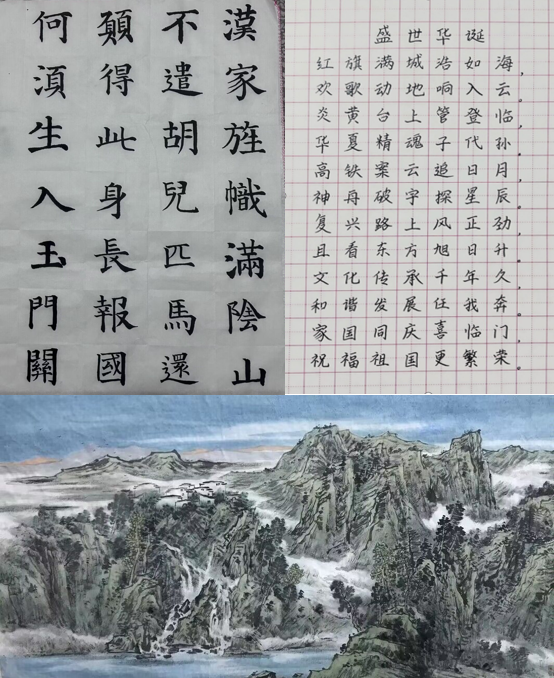 漢家旌幟滿陰山
不遣胡兒匹馬還
願得此身長報國
何湏生入玉門關
盛世华诞
红旗满城浩如海，
欢歌动地响入云。
炎黄台上管登临，
华夏精魂子代孙。
高铁案云追日月，
神舟破宇探星辰。
复兴路上风正劲，
且看东方旭日升。
文化传承千年久，
和谐发展任我奔。
家国同庆喜临门，
祝福祖国更繁荣。